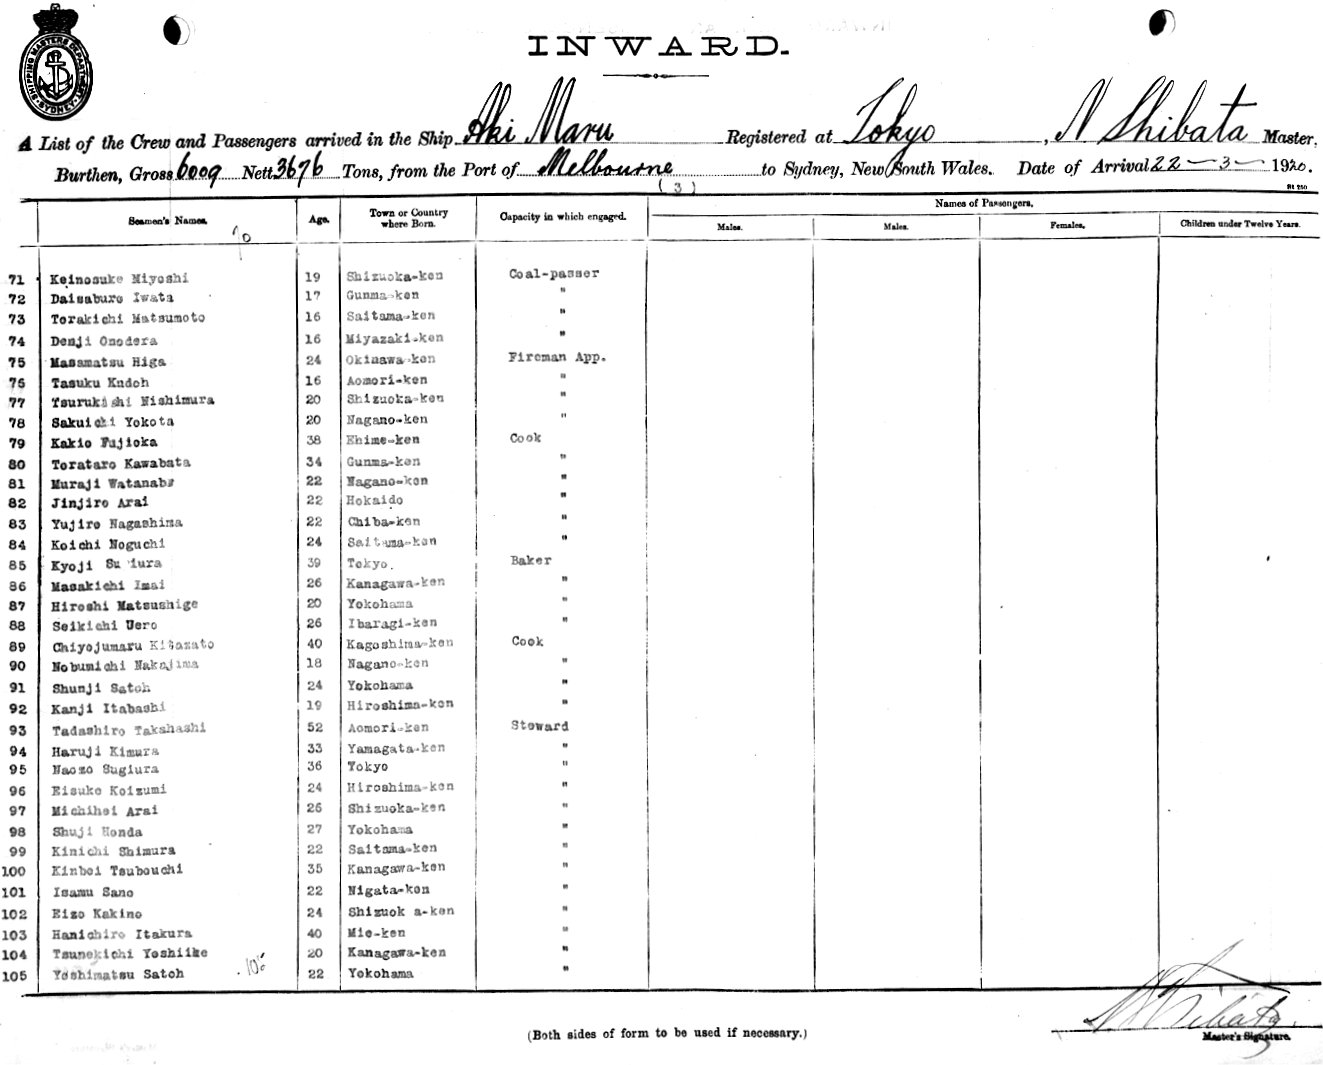 SHIPPING MASTERS DEPARTMENT SYDNEY
INWARD.
A List of the Crew and Passengers arrived in the Ship Aki Maru Registered at Tokyo, N Shibata Master,
Burthen, Gross 6009 Nett 3676 Tons, from the Port of Melbourne to Sydney, New South Wales. Date of Arrival 22-3-1920.
(3)
St 250
Seamen's Names. Age. Town or Country where Born. Capacity in which engaged. Names of Passengers.
Males. Males. Females. Children under Twelve Years.
71 Keinosuke Miyoshi 19 Shizuoka-ken Coal-passer
72 Daisaburo Iwata 17 Gunma-ken "
73 Torakichi Matsumoto 16 Saitama-ken "
74 Denji Onodera 16 Miyazaki-ken "
75 Masamatsu Higa 24 Okinawa-ken Fireman App.
76 Tasuku Kudoh 16 Aomori-ken "
77 Tsurukichi Nishimura 20 Shizuoka-ken "
78 Sakuichi Yokota 20 Nagano-ken "
79 Kakio Fujioka 38 Ehime-ken Cook
80 Torataro Kawabata 34 Gunma-ken "
81 Muraji Watanabe 22 Nagano-ken "
82 Jinjiro Arai 22 Hokaido "
83 Yujiro Nagashima 22 Chiba-ken "
84 Koichi Noguchi 24 Saitama-ken "
85 Kyoji Sugiura 39 Tokyo. Baker
86 Masakichi Imai 26 Kanagawa-ken "
87 Hiroshi Matsushige 20 Yokohama "
88 Seikichi Uero 26 Ibaragi-ken "
89 Chiyojumaru Kitazato 40 Kagoshima-ken Cook
90 Nobumichi Nakajima 18 Nagano-ken "
91 Shunji Satoh 24 Yokohama "
92 Kanji Itabashi 19 Hiroshima-ken "
93 Tadashiro Takahashi 52 Aomori-ken Steward
94 Haruji Kimura 33 Yamagata-ken "
95 Naozo Sugiura 36 Tokyo "
96 Eisuke Koizumi 24 Hiroshima-ken "
97 Michihei Arai 26 Shizuoka-ken "
98 Shuji Honda 27 Yokohama "
99 Kinichi Shimura 22 Saitama-ken "
100 Kinbei Tsubouchi 35 Kanagawa-ken "
101 Isamu Sano 22 Nigata-ken "
102 Eizo Kakino 24 Shizuok a-ken "
103 Hanichiro Itakura 40 Mie-ken "
104 Tsunekichi Yoshiike 20 Kanagawa-ken "
105 Yoshimatsu Satoh 22 Yokohama "
N Shibata
(Both sides of form to be used if necessary.)
Master's Signature.